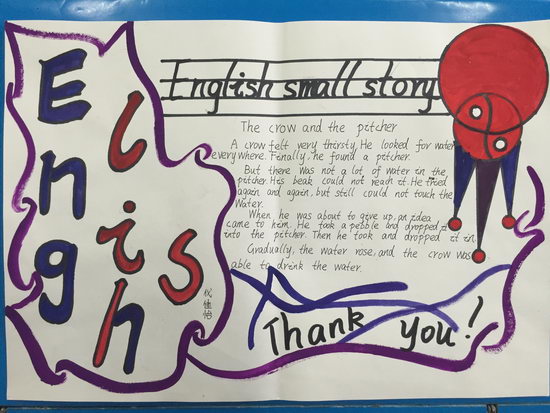 English
English small story
The crow and the pitcher
A crow felt very thirsty. He looked for water
everywhere. Finally, he found a pitcher.
But there was not a lot of water in the
pitcher. His beak could not reach it. He tried
again and again, but still could not touch the
water.
When he was about to give up, an idea
came to him. He took a pebble and dropped it
into the pitcher. Then he took and dropped it in.
Gradually, the water rose, and the crow was
able to drink the water.
Thank you!